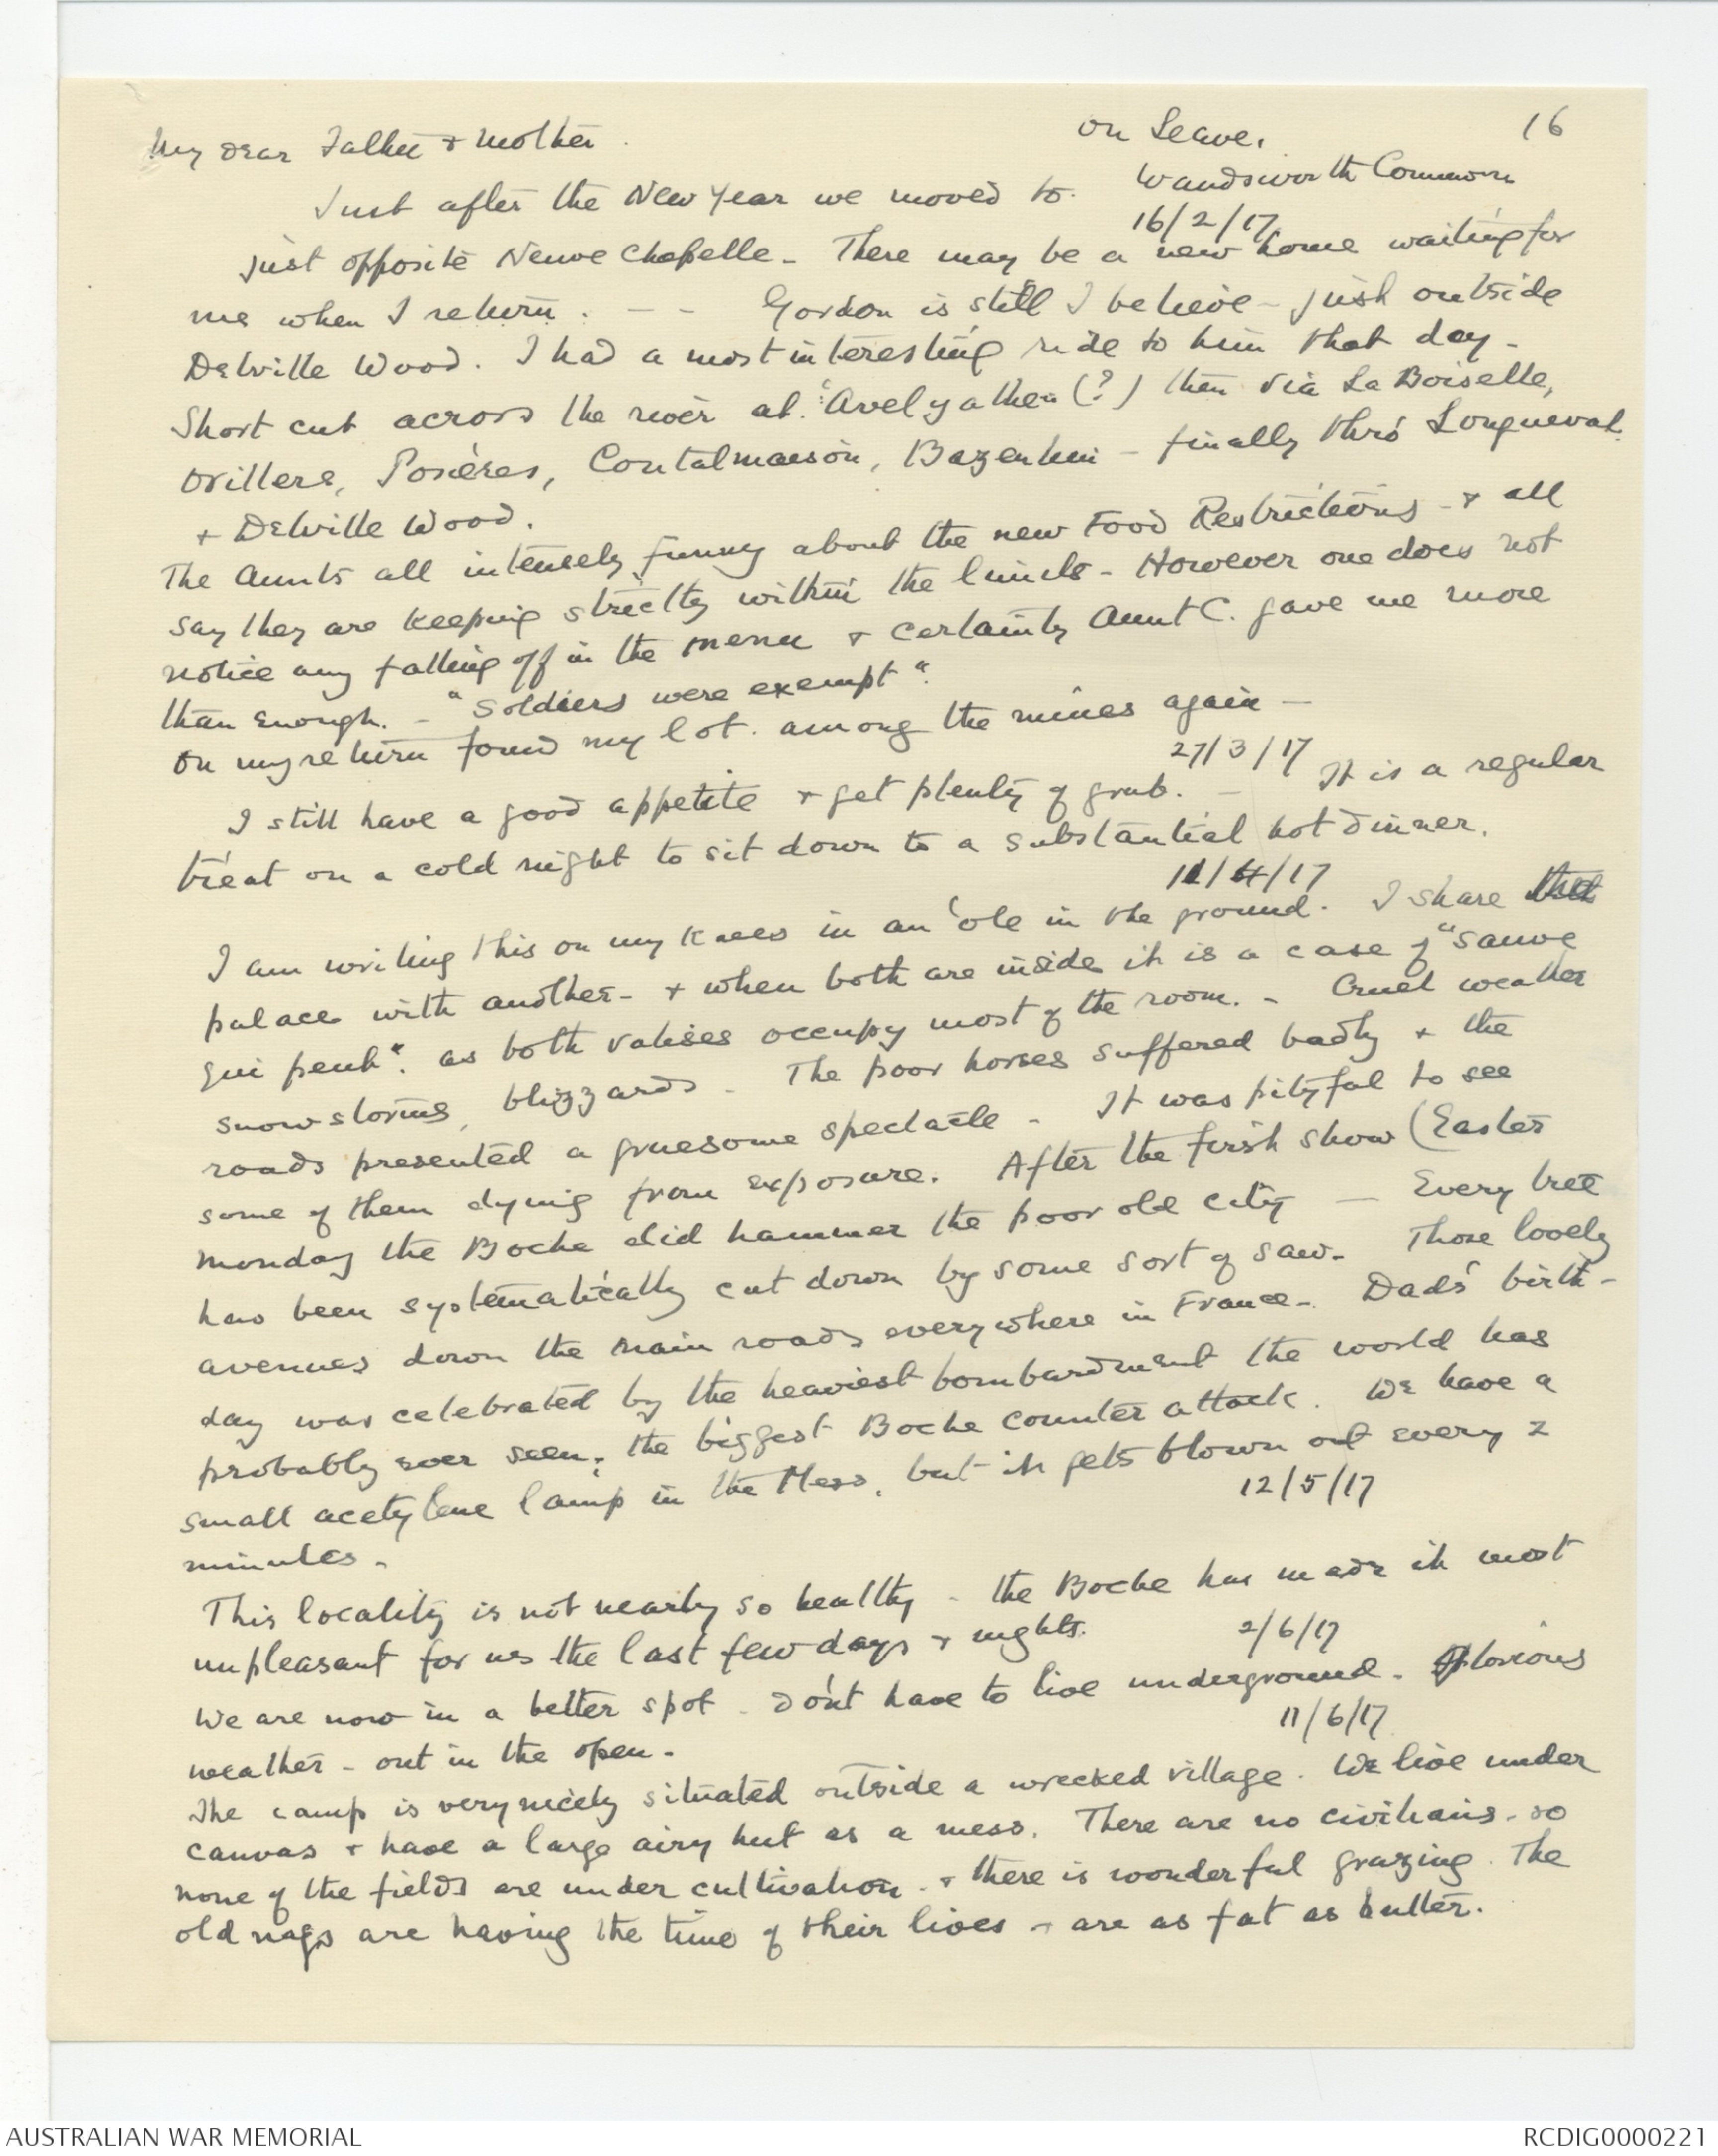 16
on Leave.
Wandsworth Common
16/2/17
My dear Father & Mother.
Just after the New Year we moved to.
just opposite Neuve Chapelle - There may be a new home waiting for
me when I return. - - Gordon is still I believe - just outside
Delville Wood. I had a most interesting ride to him that day -
Short cut across the river at. "Avelyathen (?) then via La Boiselle,
Ovillers, Posières, Contalmaison, Bazentin - finally thro' Longueval.
+ Delville Wood.
The Aunts all intensely funny about the new Food Restrictions - & all
say they are keeping strictly within the limits - However one does not
notice any falling off in the menu & certainly Aunt C. gave me more
than enough. - "Soldiers were exempt".
On my return found my lot. among the mines again -
27/3/17
I still have a good appetite & get plenty of grub. - It is a regular
treat on a cold night to sit down to a substantial hot dinner.
11/4/17
I am writing this on my knees in an 'ole in the ground. I share
palace with another - & when both are inside it is a case of "sauve
qui peut". as both valises occupy most of the room. - Cruel weather
snowstorms, blizzards - The poor horses suffered badly & the
roads presented a gruesome spectacle - It was pityful to see
some of them dying from exposure. After the first show (Easter
Monday the Boche did hammer the poor old city - Every tree
has been systematically cut down by some sort of saw. Those lovely
avenues down the main roads everywhere in France - Dad's birth-
day was celebrated by the heaviest bombardment the world has
probably ever seen; the biggest Boche counter attack. We have a
small acetylene lamp in the Mess, but it gets blown out every 2
12/5/17
minutes -
This locality is not nearly so healthy - the Boche has made it most
unpleasant for us the last few days & nights.
2/6/17
We are now in a better spot. Don't have to live underground - Glorious
11/6/17
weather - out in the open -
The camp is very nicely situated outside a wrecked village. We live under
canvas & have a large airy hut as a mess. There are no civilians - so
none of the fields are under cultivation - & there is wonderful grazing. The
old nags are having the time of their lives - are as fat as butter.
AUSTRALIAN WAR MEMORIAL
RCDIG0000221